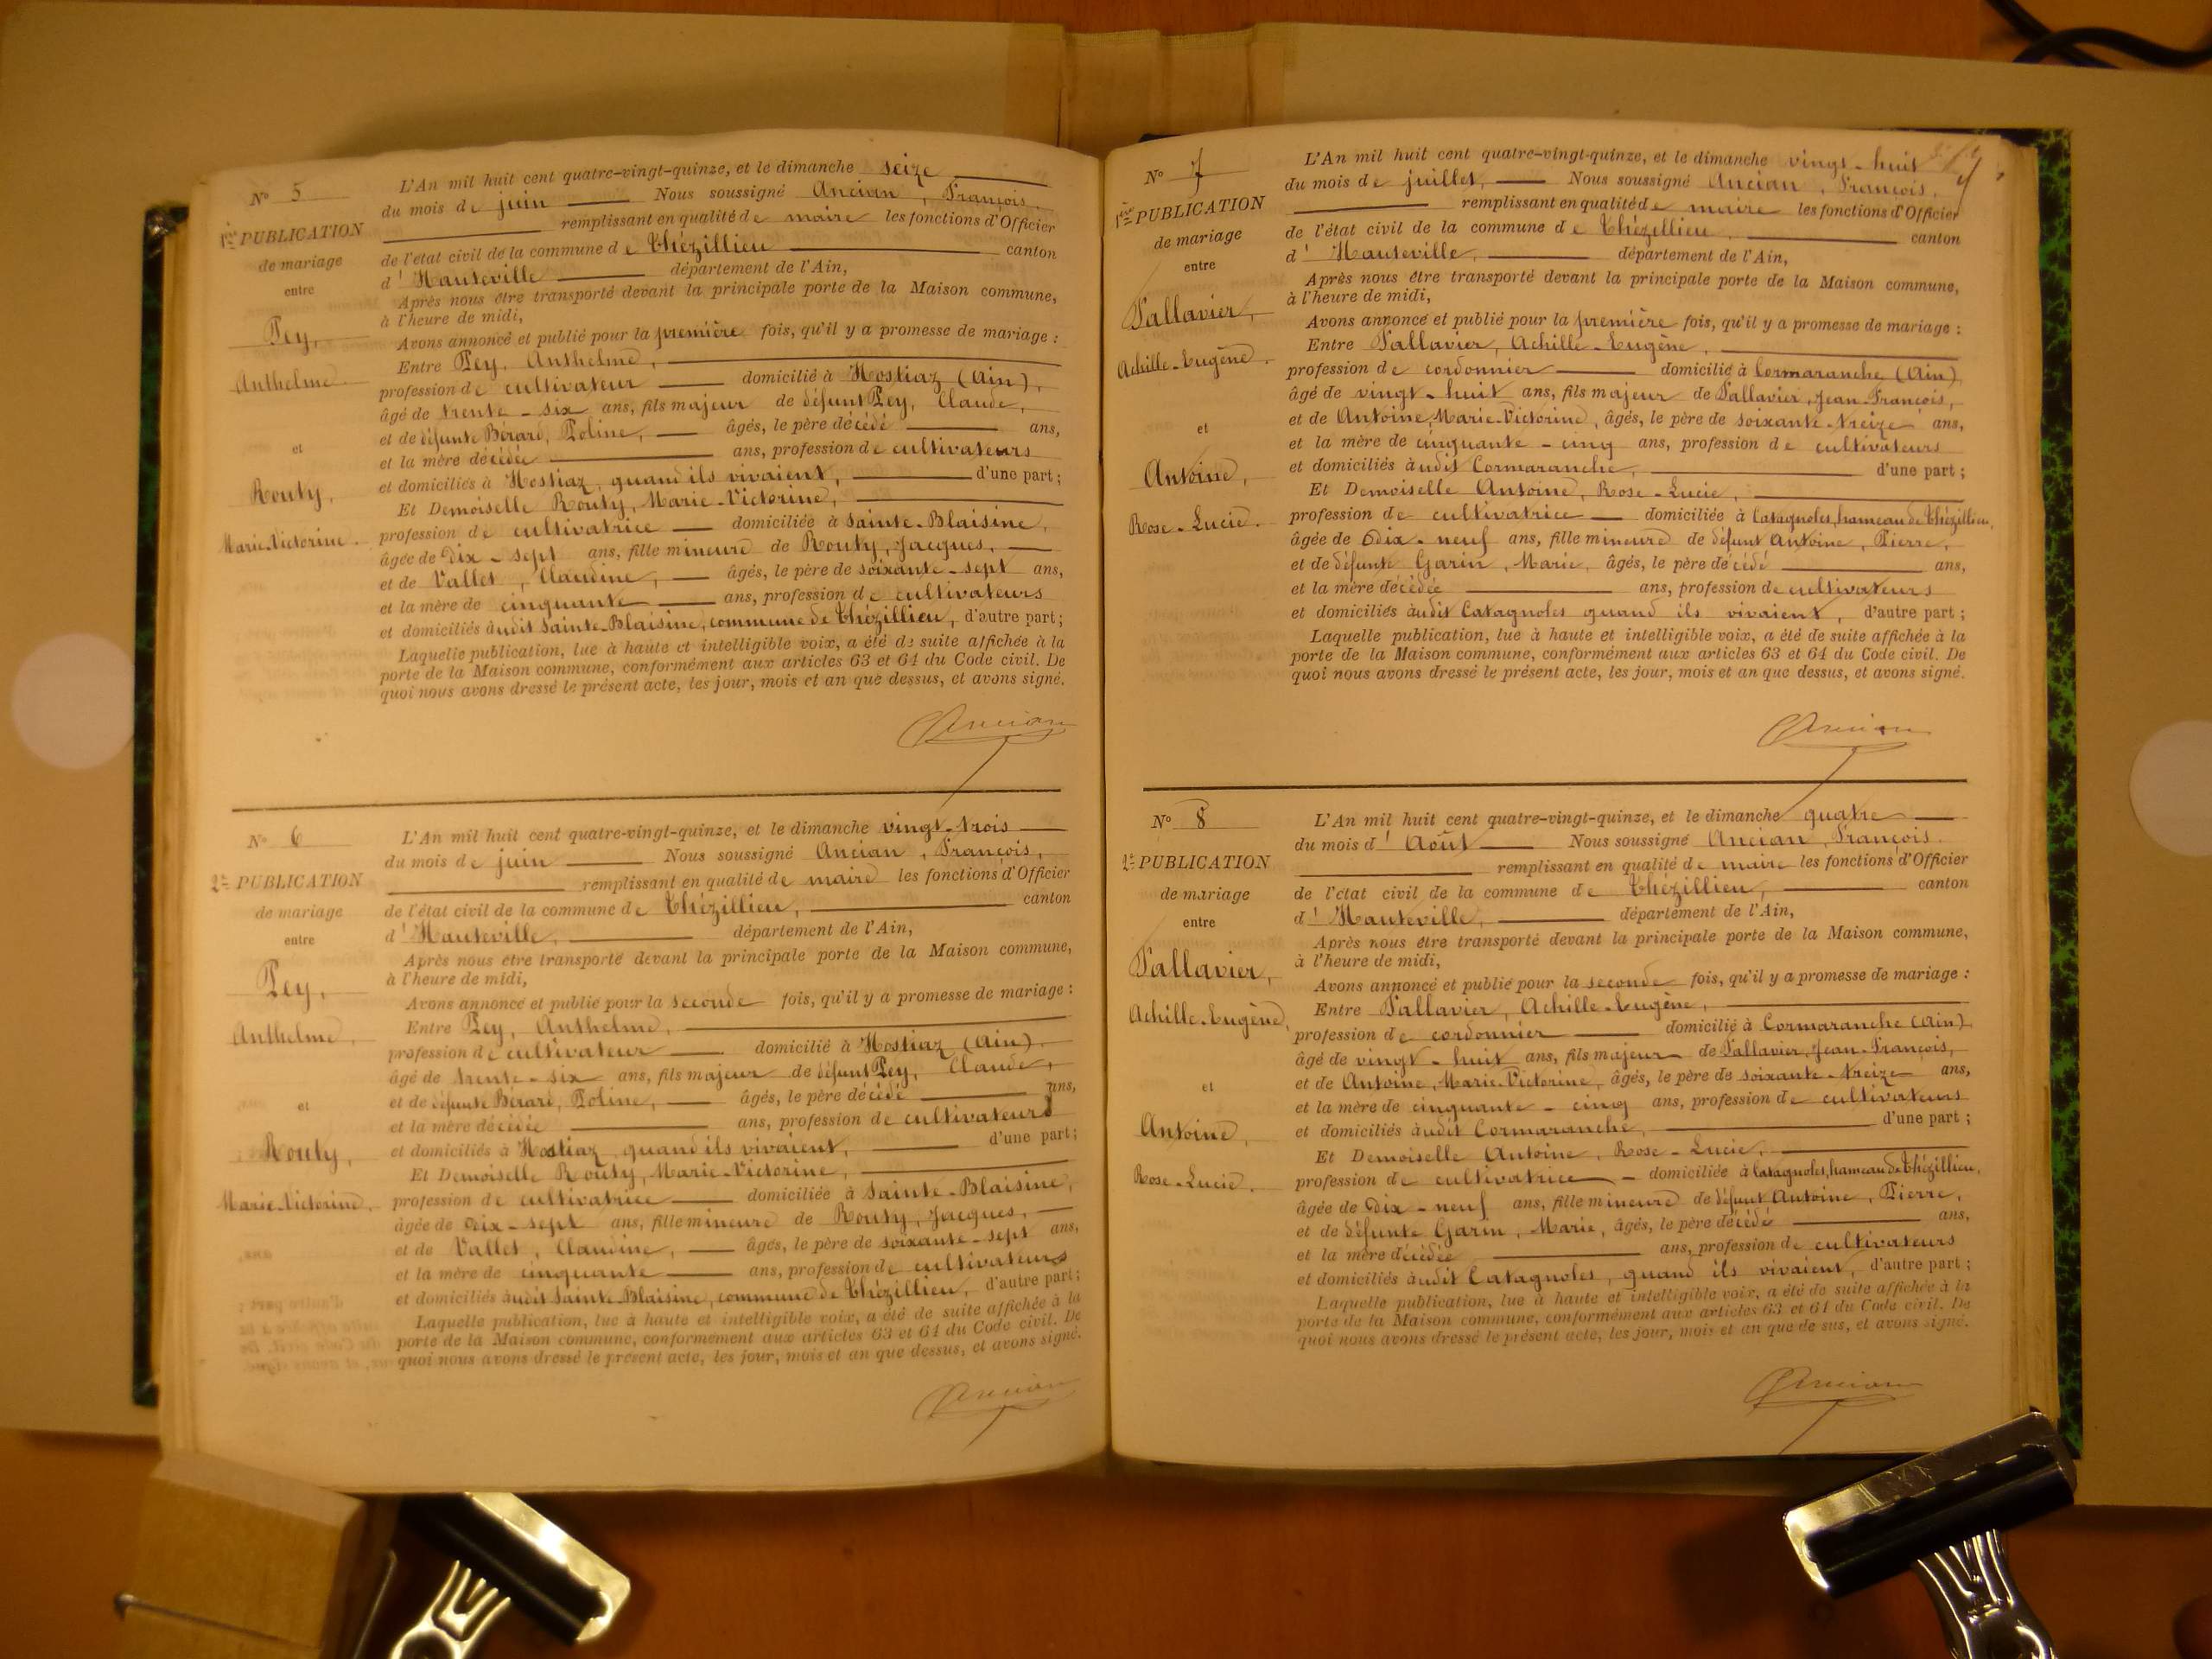 N° 5
1ère PUBLICATION
de mariage
entre
Pey,
Anthelme.
et
Routy,
Marie-Victorine.
L'An mil huit cent quatre-vingt-quinze, et le dimanche seize
du mois de juin Nous soussigné Ancian, François.
remplissant en qualité de maire les fonctions d'Officier
de l'état civil de la commune de Thézillieu canton
d'Hauteville département de l'Ain,
Après nous être transporté devant la principale porte de la Maison commune,
à l'heure de midi,
Avons annoncé et publié pour la première fois, qu'il y a promesse de mariage :
Entre Pey, Anthelme,
profession de cultivateur domicilié à Hostiaz (Ain),
âgé de trente-six ans, fils majeur de défunt Pey, Claude,
et de défunte Bérard, Poline, âgés, le père décédé ans,
et la mère décédée ans, profession de cultivateurs
et domiciliés à Hostiaz, quand ils vivaient, d'une part ;
Et Demoiselle Routy, Marie-Victorine,
profession de cultivatrice domiciliée à Sainte-Blaisine,
âgée de dix-sept ans, fille mineure de Routy, Jacques,
et de Vallet, Claudine, âgés, le père de soixante-sept ans,
et la mère de cinquante ans, profession de cultivateurs
et domiciliés audit Sainte-Blaisine, commune de Thézillieu, d'autre part ;
Laquelle publication, lue à haute et intelligible voix, a été de suite affichée à la
porte de la Maison commune, conformément aux articles 63 et 64 du Code civil. De
quoi nous avons dressé le présent acte, les jour, mois et an que dessus, et avons signé.
Ancian
N° 6
2e PUBLICATION
de mariage
entre
Pey,
Anthelme,
et
Routy,
Marie-Victorine.
L'An mil huit cent quatre-vingt-quinze, et le dimanche vingt-trois
du mois de juin Nous soussigné Ancian, François,
remplissant en qualité de maire les fonctions d'Officier
de l'état civil de la commune de Thézillieu, canton
d'Hauteville, département de l'Ain,
Après nous être transporté devant la principale porte de la Maison commune,
à l'heure de midi,
Avons annoncé et publié pour la seconde fois, qu'il y a promesse de mariage :
Entre Pey, Anthelme,
profession de cultivateur domicilié à Hostiaz (Ain),
âgé de trente-six ans, fils majeur de défunt Pey, Claude,
et de défunte Bérard, Poline, âgés, le père décédé ans,
et la mère décédée ans, profession de cultivateurs
et domiciliés à Hostiaz, quand ils vivaient, d'une part ;
Et Demoiselle Routy, Marie-Victorine,
profession de cultivatrice domiciliée à Sainte-Blaisine,
âgée de dix-sept ans, fille mineure de Routy, Jacques,
et de Vallet, Claudine, âgés, le père de soixante-sept ans,
et la mère de cinquante ans, profession de cultivateurs
et domiciliés audit Sainte-Blaisine, commune de Thézillieu, d'autre part ;
Laquelle publication, lue à haute et intelligible voix, a été de suite affichée à la
porte de la Maison commune, conformément aux articles 63 et 64 du Code civil. De
quoi nous avons dressé le présent acte, les jour, mois et an que dessus, et avons signé.
Ancian
N° 7
1ère PUBLICATION
de mariage
entre
Pallavier,
Achille-Eugène.
et
Antoine,
Rose-Lucie.
L'An mil huit cent quatre-vingt-quinze, et le dimanche vingt-huit
du mois de juillet, Nous soussigné Ancian, François,
remplissant en qualité de maire les fonctions d'Officier
de l'état civil de la commune de Thézillieu, canton
d'Hauteville, département de l'Ain,
Après nous être transporté devant la principale porte de la Maison commune,
à l'heure de midi,
Avons annoncé et publié pour la première fois, qu'il y a promesse de mariage :
Entre Pallavier, Achille-Eugène,
profession de cordonnier domicilié à Cormaranche (Ain)
âgé de vingt-huit ans, fils majeur de Pallavier, Jean-François,
et de Antoine, Marie-Victorine, âgés, le père de soixante-treize ans,
et la mère de cinquante-cinq ans, profession de cultivateurs
et domiciliés audit Cormaranche, d'une part ;
Et Demoiselle Antoine, Rose-Lucie,
profession de cultivatrice domiciliée à Catagnoles, hameau de Thézillieu,
âgée de dix-neuf ans, fille mineure de défunt Antoine, Pierre,
et de défunte Garin, Marie, âgés, le père décédé ans,
et la mère décédée ans, profession de cultivateurs
et domiciliés audit Catagnoles quand ils vivaient, d'autre part ;
Laquelle publication, lue à haute et intelligible voix, a été de suite affichée à la
porte de la Maison commune, conformément aux articles 63 et 64 du Code civil. De
quoi nous avons dressé le présent acte, les jour, mois et an que dessus, et avons signé.
Ancian
N° 8
2e PUBLICATION
de mariage
entre
Pallavier,
Achille-Eugène,
et
Antoine,
Rose-Lucie.
L'An mil huit cent quatre-vingt-quinze, et le dimanche quatre
du mois d'Août Nous soussigné Ancian, François.
remplissant en qualité de maire les fonctions d'Officier
de l'état civil de la commune de Thézillieu, canton
d'Hauteville, département de l'Ain,
Après nous être transporté devant la principale porte de la Maison commune,
à l'heure de midi,
Avons annoncé et publié pour la seconde fois, qu'il y a promesse de mariage :
Entre Pallavier, Achille-Eugène,
profession de cordonnier domicilié à Cormaranche (Ain)
âgé de vingt-huit ans, fils majeur de Pallavier, Jean-François,
et de Antoine, Marie-Victorine, âgés, le père de soixante-treize ans,
et la mère de cinquante-cinq ans, profession de cultivateurs
et domiciliés audit Cormaranche, d'une part ;
Et Demoiselle Antoine, Rose-Lucie,
profession de cultivatrice domiciliée à Catagnoles, hameau de Thézillieu,
âgée de dix-neuf ans, fille mineure de défunt Antoine, Pierre,
et de défunte Garin, Marie, âgés, le père décédé ans,
et la mère décédée ans, profession de cultivateurs
et domiciliés audit Catagnoles, quand ils vivaient, d'autre part ;
Laquelle publication, lue à haute et intelligible voix, a été de suite affichée à la
porte de la Maison commune, conformément aux articles 63 et 64 du Code civil. De
quoi nous avons dressé le présent acte, les jour, mois et an que dessus, et avons signé.
Ancian